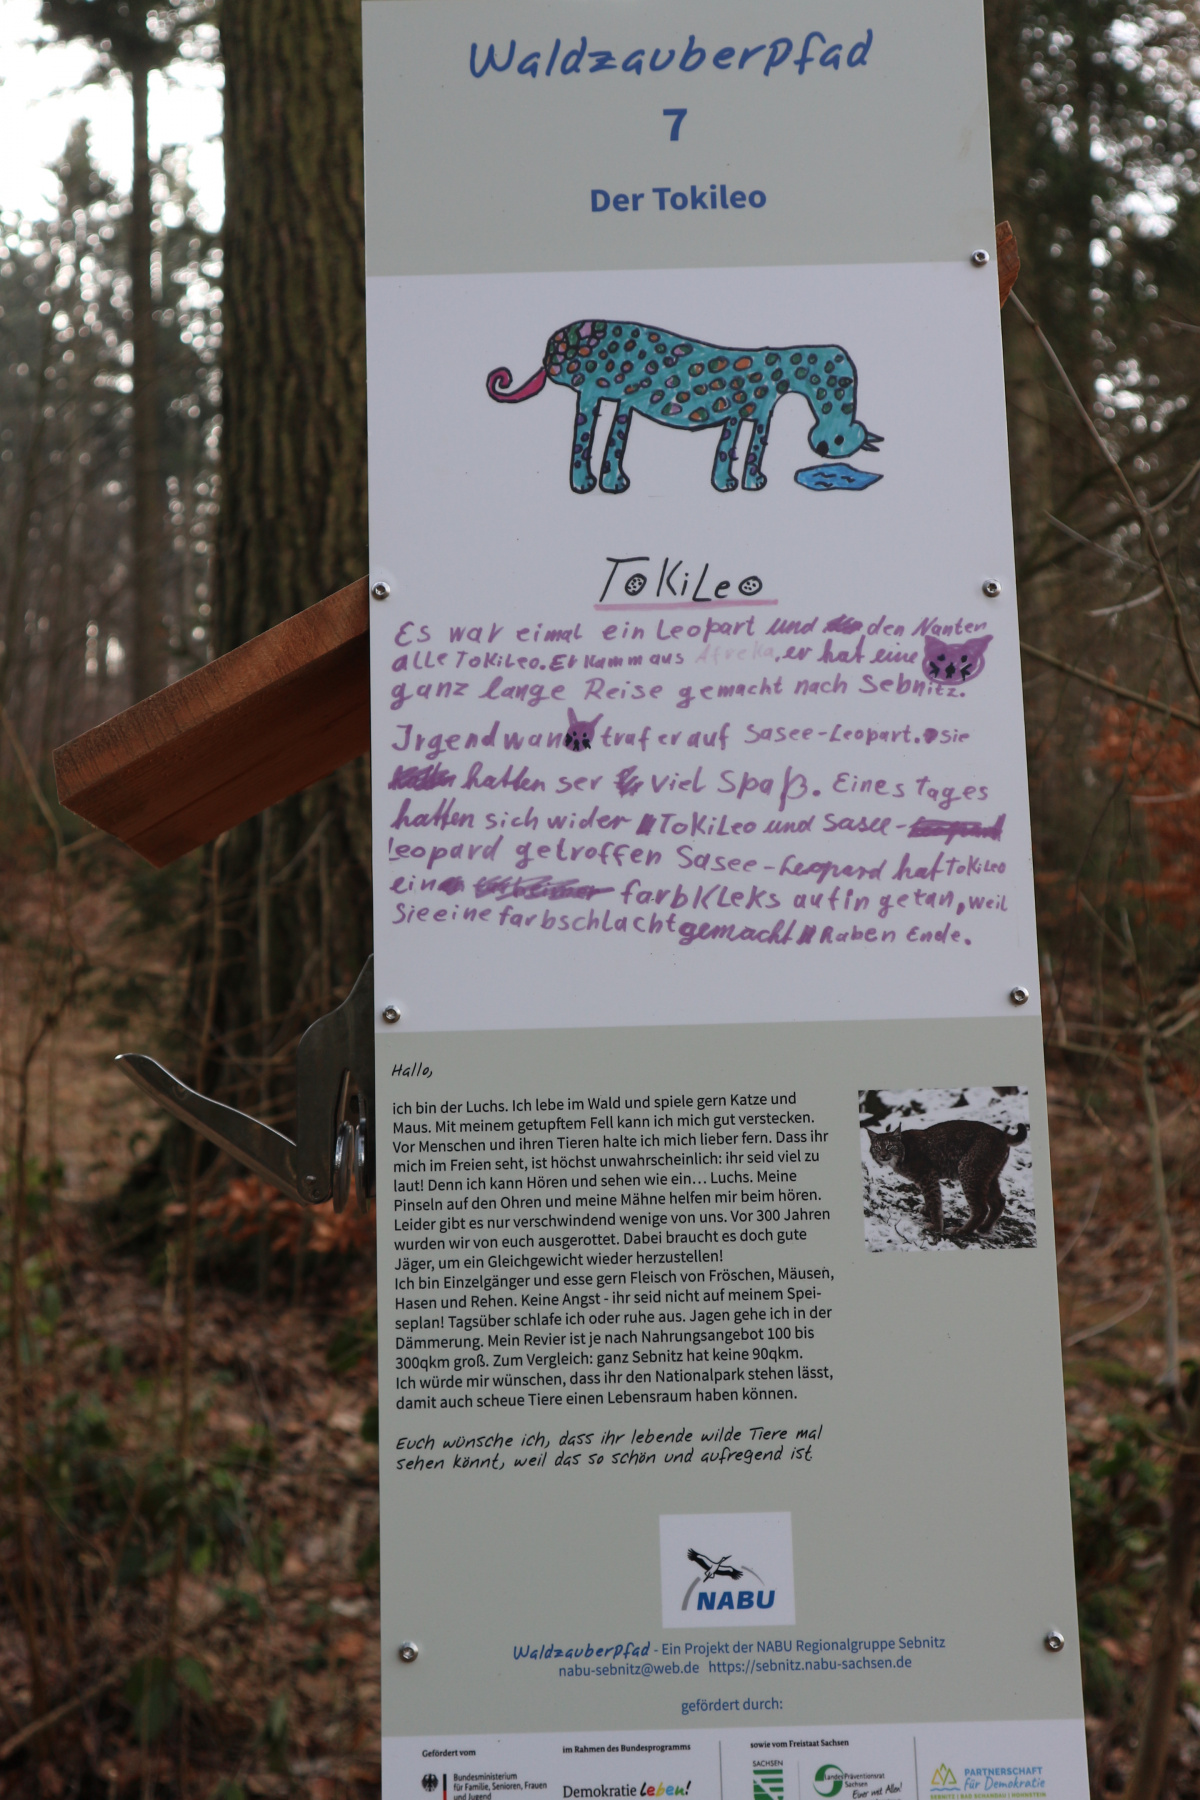 Waldzauberpfad
7
Der Tokileo
TOKiLeo
Es war eimal ein Leopart und den Nanten
alle TOKiLeo. Er kamm aus Afreka, er hat eine
ganz lange Reise gemacht nach Sebnitz.
Jrgendwan traf er auf Sasee-Leopart. sie
hatten ser viel Spaß. Eines tages
hatten sich wider TOKiLeo und Sasee-
Leopard getroffen Sasee-Leopard hat TOKiLeo
ein farbKLeKs auf in getan, weil
Sie eine farbschlacht gemacht Raben Ende.
Hallo,
ich bin der Luchs. Ich lebe im Wald und spiele gern Katze und
Maus. Mit meinem getupftem Fell kann ich mich gut verstecken.
Vor Menschen und ihren Tieren halte ich mich lieber fern. Dass ihr
mich im Freien seht, ist höchst unwahrscheinlich: ihr seid viel zu
laut! Denn ich kann Hören und sehen wie ein... Luchs. Meine
Pinseln auf den Ohren und meine Mähne helfen mir beim hören.
Leider gibt es nur verschwindend wenige von uns. Vor 300 Jahren
wurden wir von euch ausgerottet. Dabei braucht es doch gute
Jäger, um ein Gleichgewicht wieder herzustellen!
Ich bin Einzelgänger und esse gern Fleisch von Fröschen, Mäusen,
Hasen und Rehen. Keine Angst - ihr seid nicht auf meinem Spei-
seplan! Tagsüber schlafe ich oder ruhe aus. Jagen gehe ich in der
Dämmerung. Mein Revier ist je nach Nahrungsangebot 100 bis
300qkm groß. Zum Vergleich: ganz Sebnitz hat keine 90qkm.
Ich würde mir wünschen, dass ihr den Nationalpark stehen lässt,
damit auch scheue Tiere einen Lebensraum haben können.
Euch wünsche ich, dass ihr lebende wilde Tiere mal
sehen könnt, weil das so schön und aufregend ist
NABU
Waldzauberpfad - Ein Projekt der NABU Regionalgruppe Sebnitz
nabu-sebnitz@web.de https://sebnitz.nabu-sachsen.de
gefördert durch:
Gefördert vom
Bundesministerium
für Familie, Senioren, Frauen
und Jugend
im Rahmen des Bundesprogramms
Demokratie leben!
sowie vom Freistaat Sachsen
SACHSEN
Landespräventionsrat
Sachsen
PARTNERSCHAFT
für Demokratie
SEBNITZ | BAD SCHANDAU | HOHNSTEIN